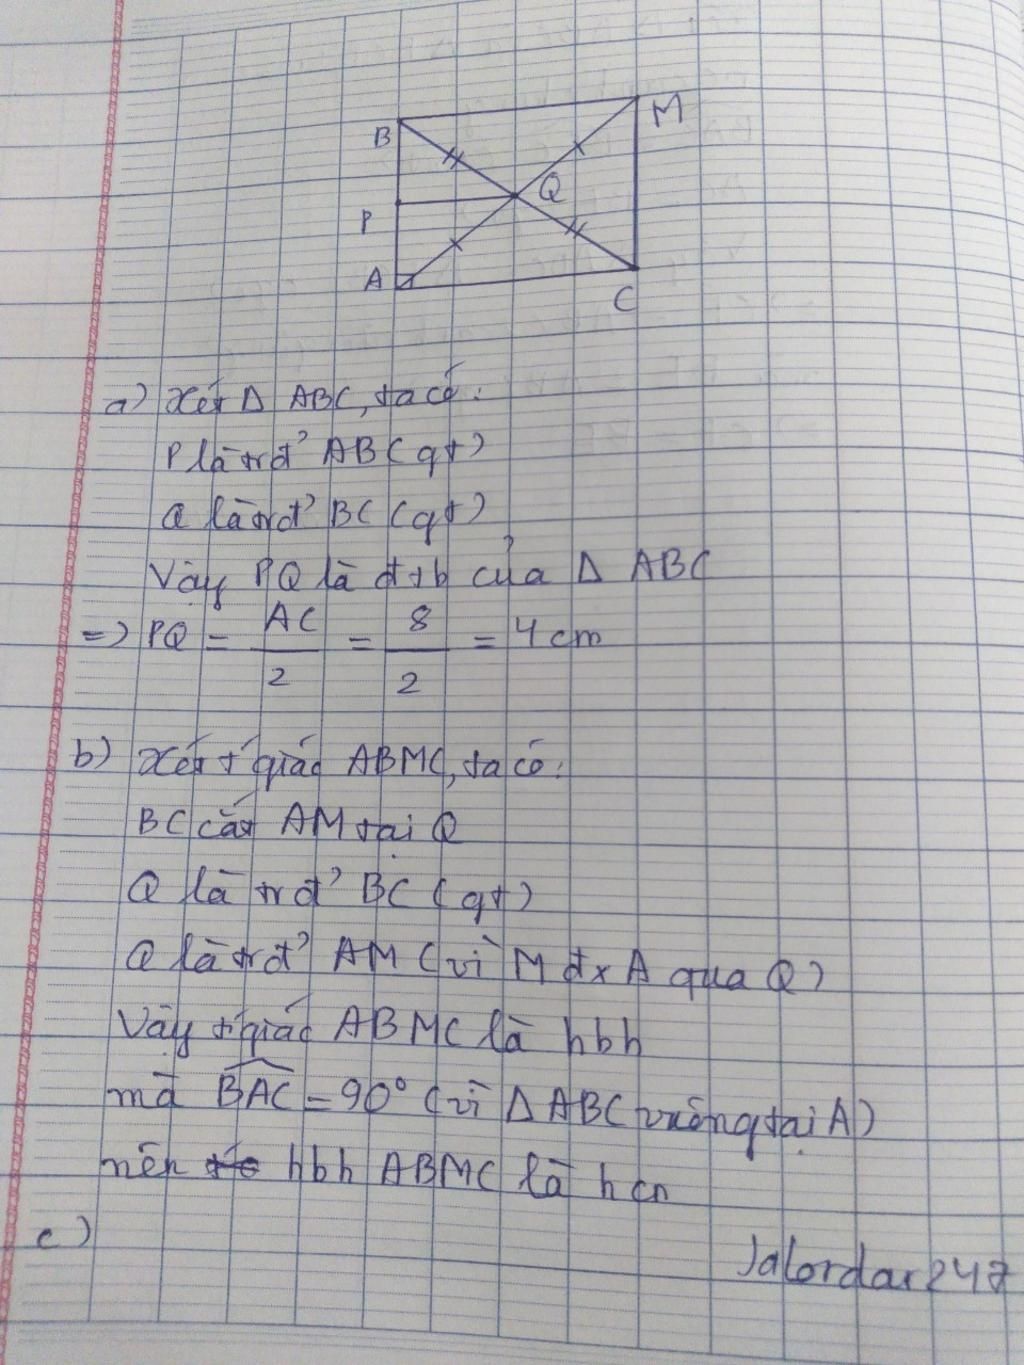 B
M
Q
P
A
C
a) Xét Δ ABC, ta có:
P là trđ' AB (gt)
Q là trđ' BC (gt)
Vậy PQ là đtb của Δ ABC
=> PQ = AC/2 = 8/2 = 4 cm
b) Xét t' giác ABMC, ta có:
BC cắt AM tại Q
Q là trđ' BC (gt)
Q là trđ' AM (vì M đx A qua Q)
Vậy t'giác ABMC là hbh
mà BAC = 90° (vì Δ ABC vuông tại A)
nên hbh ABMC là hcn
c)
Jalordar247